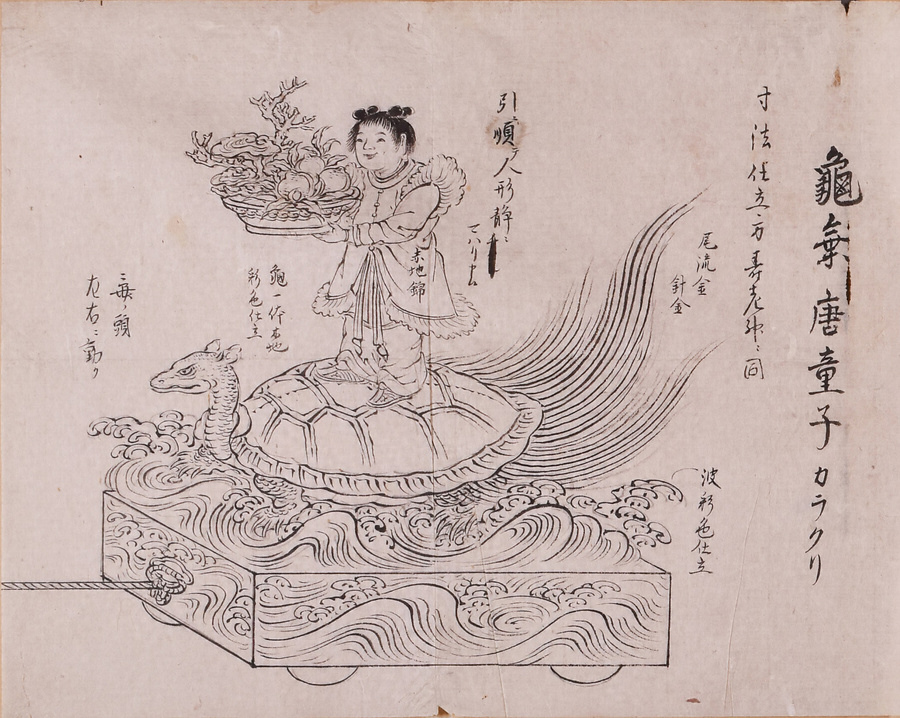 龜乗唐童子カラクリ
寸法仕立方寿老神ニ同
尾流金
針金
波彩色仕立
引順
人形静ニ
赤地錦
龜一作木地
彩色仕立
左右ニ動ク